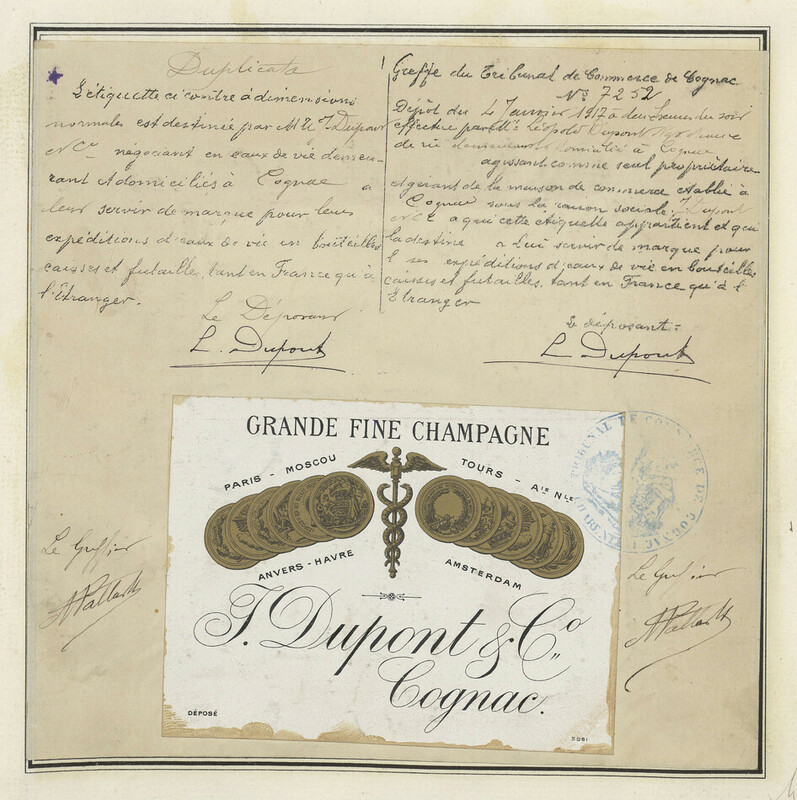 Duplicata
L'étiquette ci contre à dimensions
normales est destinée par MM J. Dupont
& Cº négociant en eaux de vie demeu-
rant et domiciliés à Cognac a
leur servir de marque pour leurs
expéditions d'eaux de vie en bouteilles
caisses et futailles, tant en France qu'à
l'Étranger.
Le Déposant
L. Dupont
Greffe du Tribunal de Commerce de Cognac
Nº 7252
Dépôt du 4 Janvier 1917 à deux heures du soir
effectué par Mr Léopold Dupont
de vie demeurant & domicilié à Cognac
agissant comme seul propriétaire
et gérant de la maison de commerce établie à
Cognac sous la raison sociale, J. Dupont
& Cº a qui cette étiquette appartient et qui
la destine a lui servir de marque pour
ses expéditions d'eaux de vie en bouteilles
caisses et futailles, tant en France qu'à l'
Étranger
Le déposant =
L. Dupont
GRANDE FINE CHAMPAGNE
PARIS - MOSCOU
TOURS - Aie Nle
ANVERS - HAVRE
AMSTERDAM
J. Dupont & Cº
Cognac.
DÉPOSÉ
TRIBUNAL DE COMMERCE DE COGNAC
Le Greffier
Le Greffier